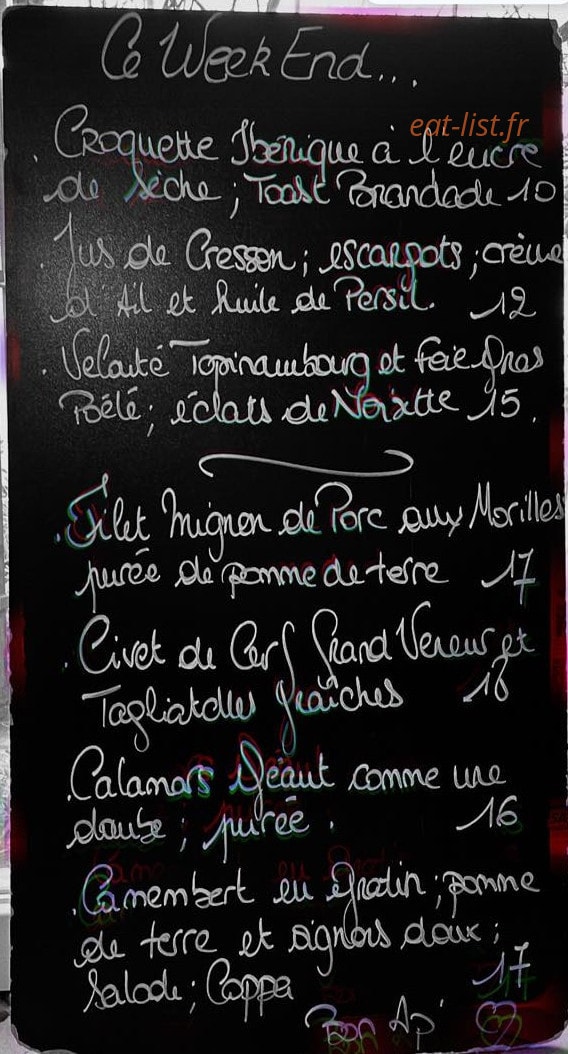 Ce Week End...
eat-list.fr
. Croquette Ibérique à l'encre
de Sèche ; Toast Brandade 10
. Jus de Cresson ; escargots ; crème
d'Ail et huile de Persil. 12
. Velouté Topinambourg et Foie Gras
Poêlé ; éclats de Noisette 15.
. Filet Mignon de Porc aux Morilles
purée de pomme de terre 17
. Civet de Cerf Grand Veneur et
Tagliatelles fraîches
. Calamars Géant comme une
daube ; purée . 16
. Camembert en Gratin ; pomme
de terre et oignons doux ;
Salade ; Coppa 17
Bon Ap'